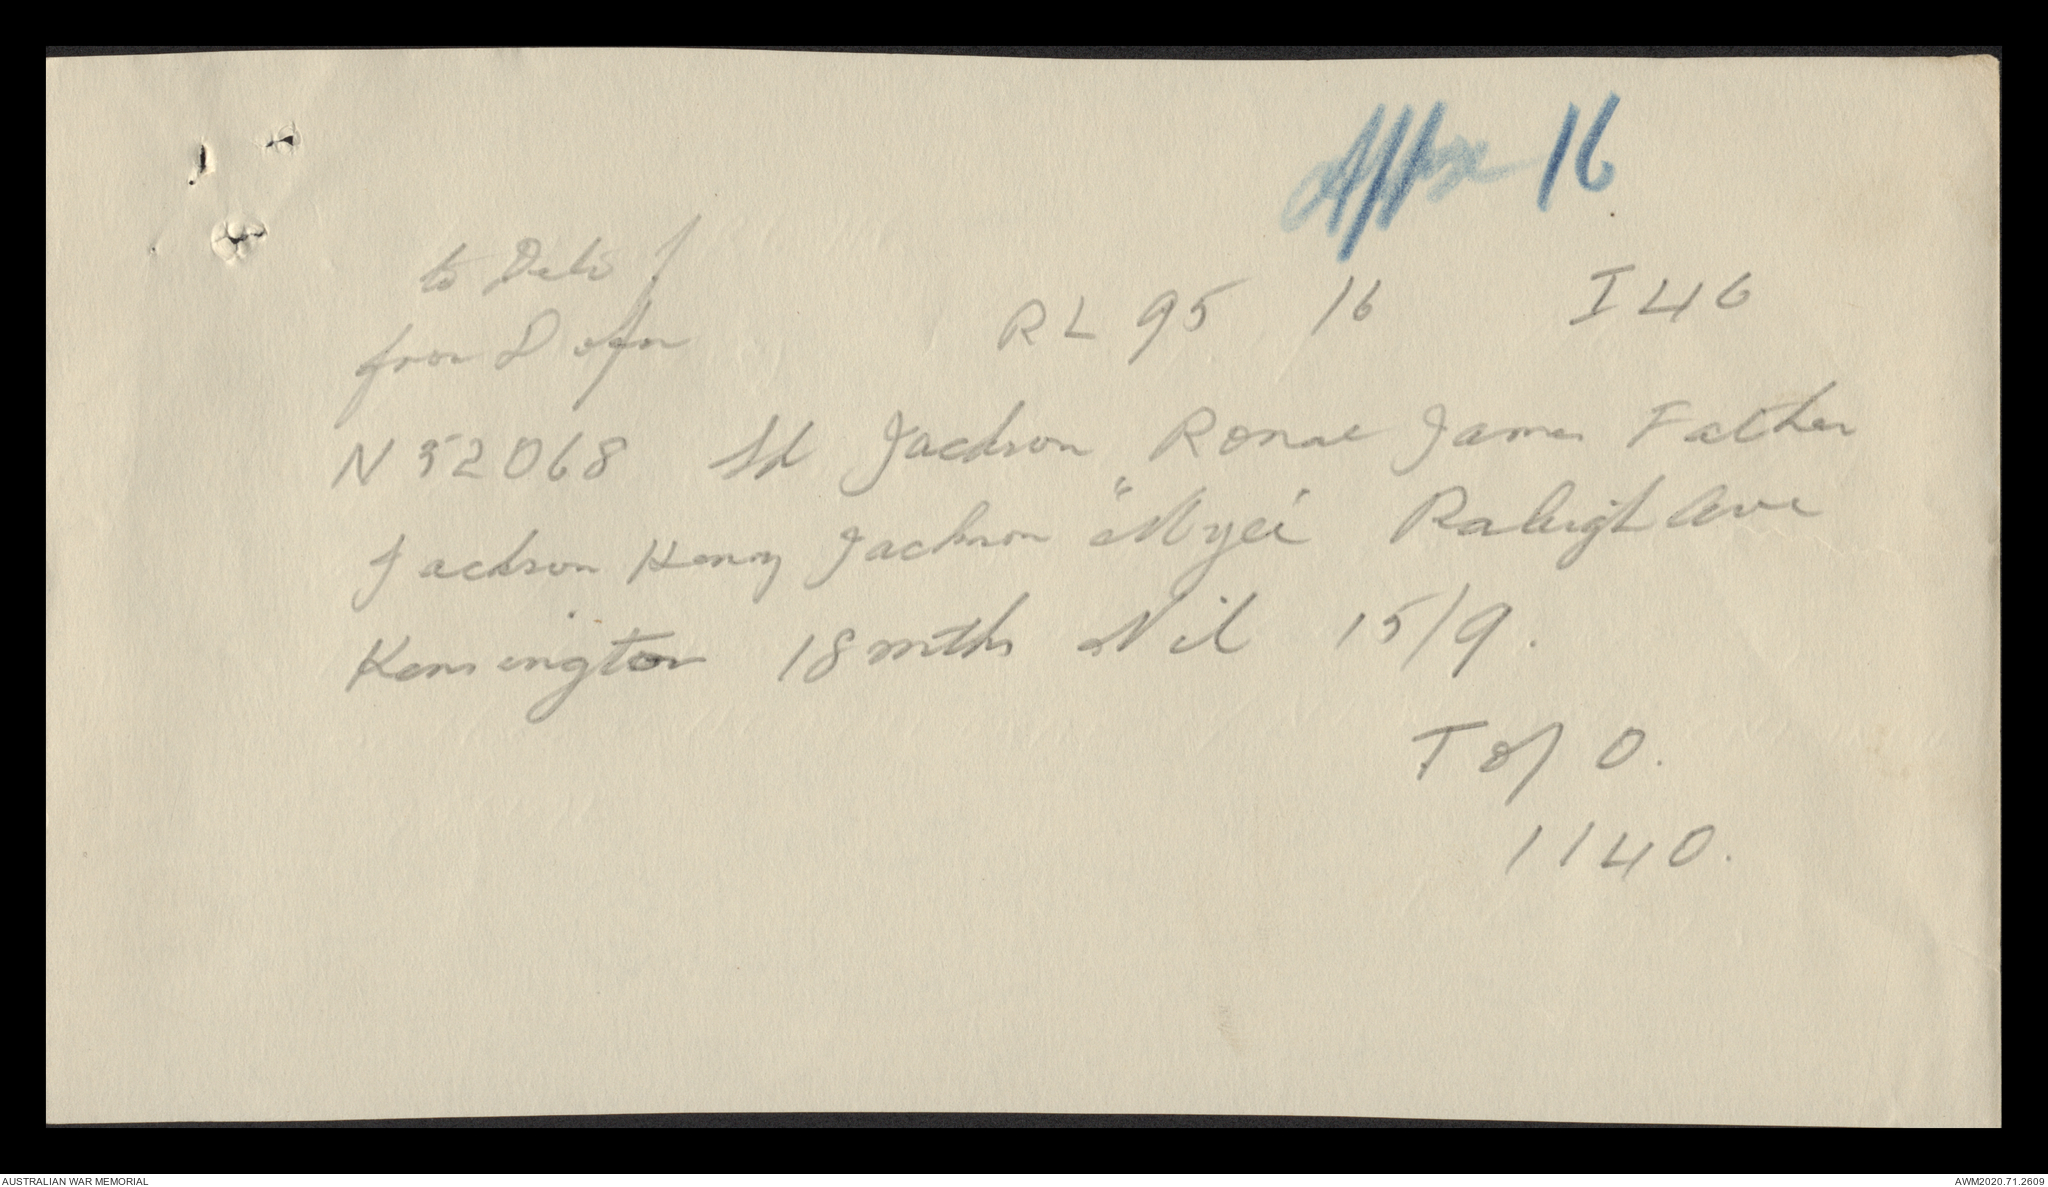 Appx 16
to Delo /
from D of
RL 95 16 I 46
N 52068 Jackson Ronal James Father
Jackson Henry Jackson "Myei" Raleigh Ave
Kensington 18 mths Nil 15/9.
T of O.
1140.
AUSTRALIAN WAR MEMORIAL
AWM2020.71.2609